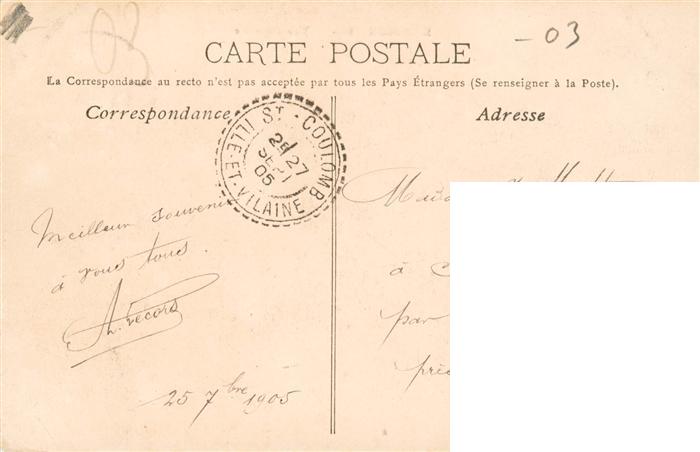 03
-03
CARTE POSTALE
La Correspondance au recto n'est pas acceptée par tous les Pays Étrangers (Se renseigner à la Poste).
Correspondance
Adresse
ST-COULOMB
ILLE-ET-VILAINE
2E 27
05
Meilleur souvenir
à vous tous.
25 7bre 1905
à
par